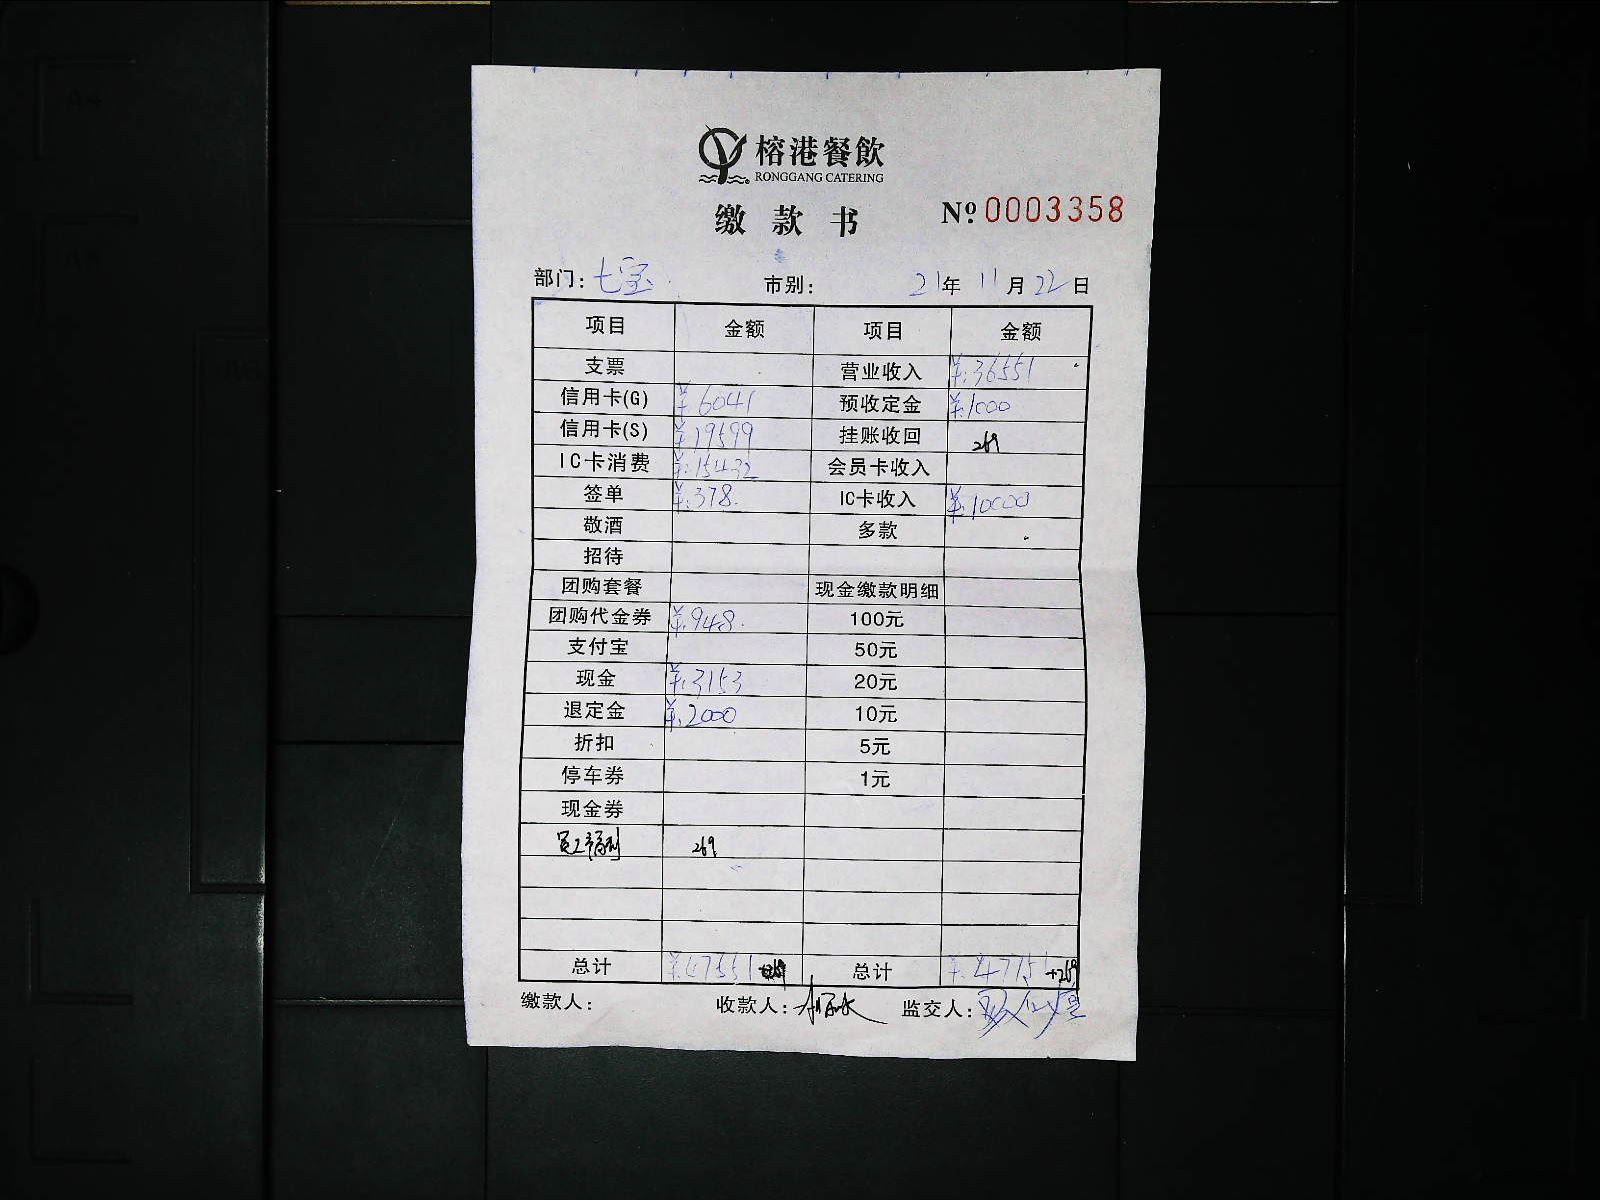 榕港餐飲
RONGGANG CATERING
缴款书 № 0003358
部门：七宝 市别： 21年 11月 22日
项目 金额 项目 金额
支票 营业收入 ¥:36551
信用卡(G) ¥.6041 预收定金 ¥.1000
信用卡(S) ¥.19599 挂账收回 269
IC卡消费 ¥.15432 会员卡收入
签单 ¥.378. IC卡收入 ¥.10000
敬酒 多款
招待
团购套餐 现金缴款明细
团购代金券 ¥.948. 100元
支付宝 50元
现金 ¥.3153 20元
退定金 ¥.2000 10元
折扣 5元
停车券 1元
现金券
员工福利 269
总计 ¥.47551 +269 总计 ¥.4755 +269
缴款人： 收款人： 监交人：